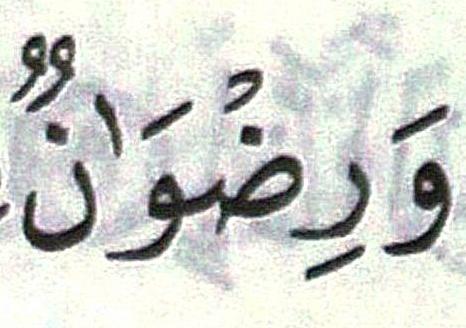 وَرِضْوَٰنٌ